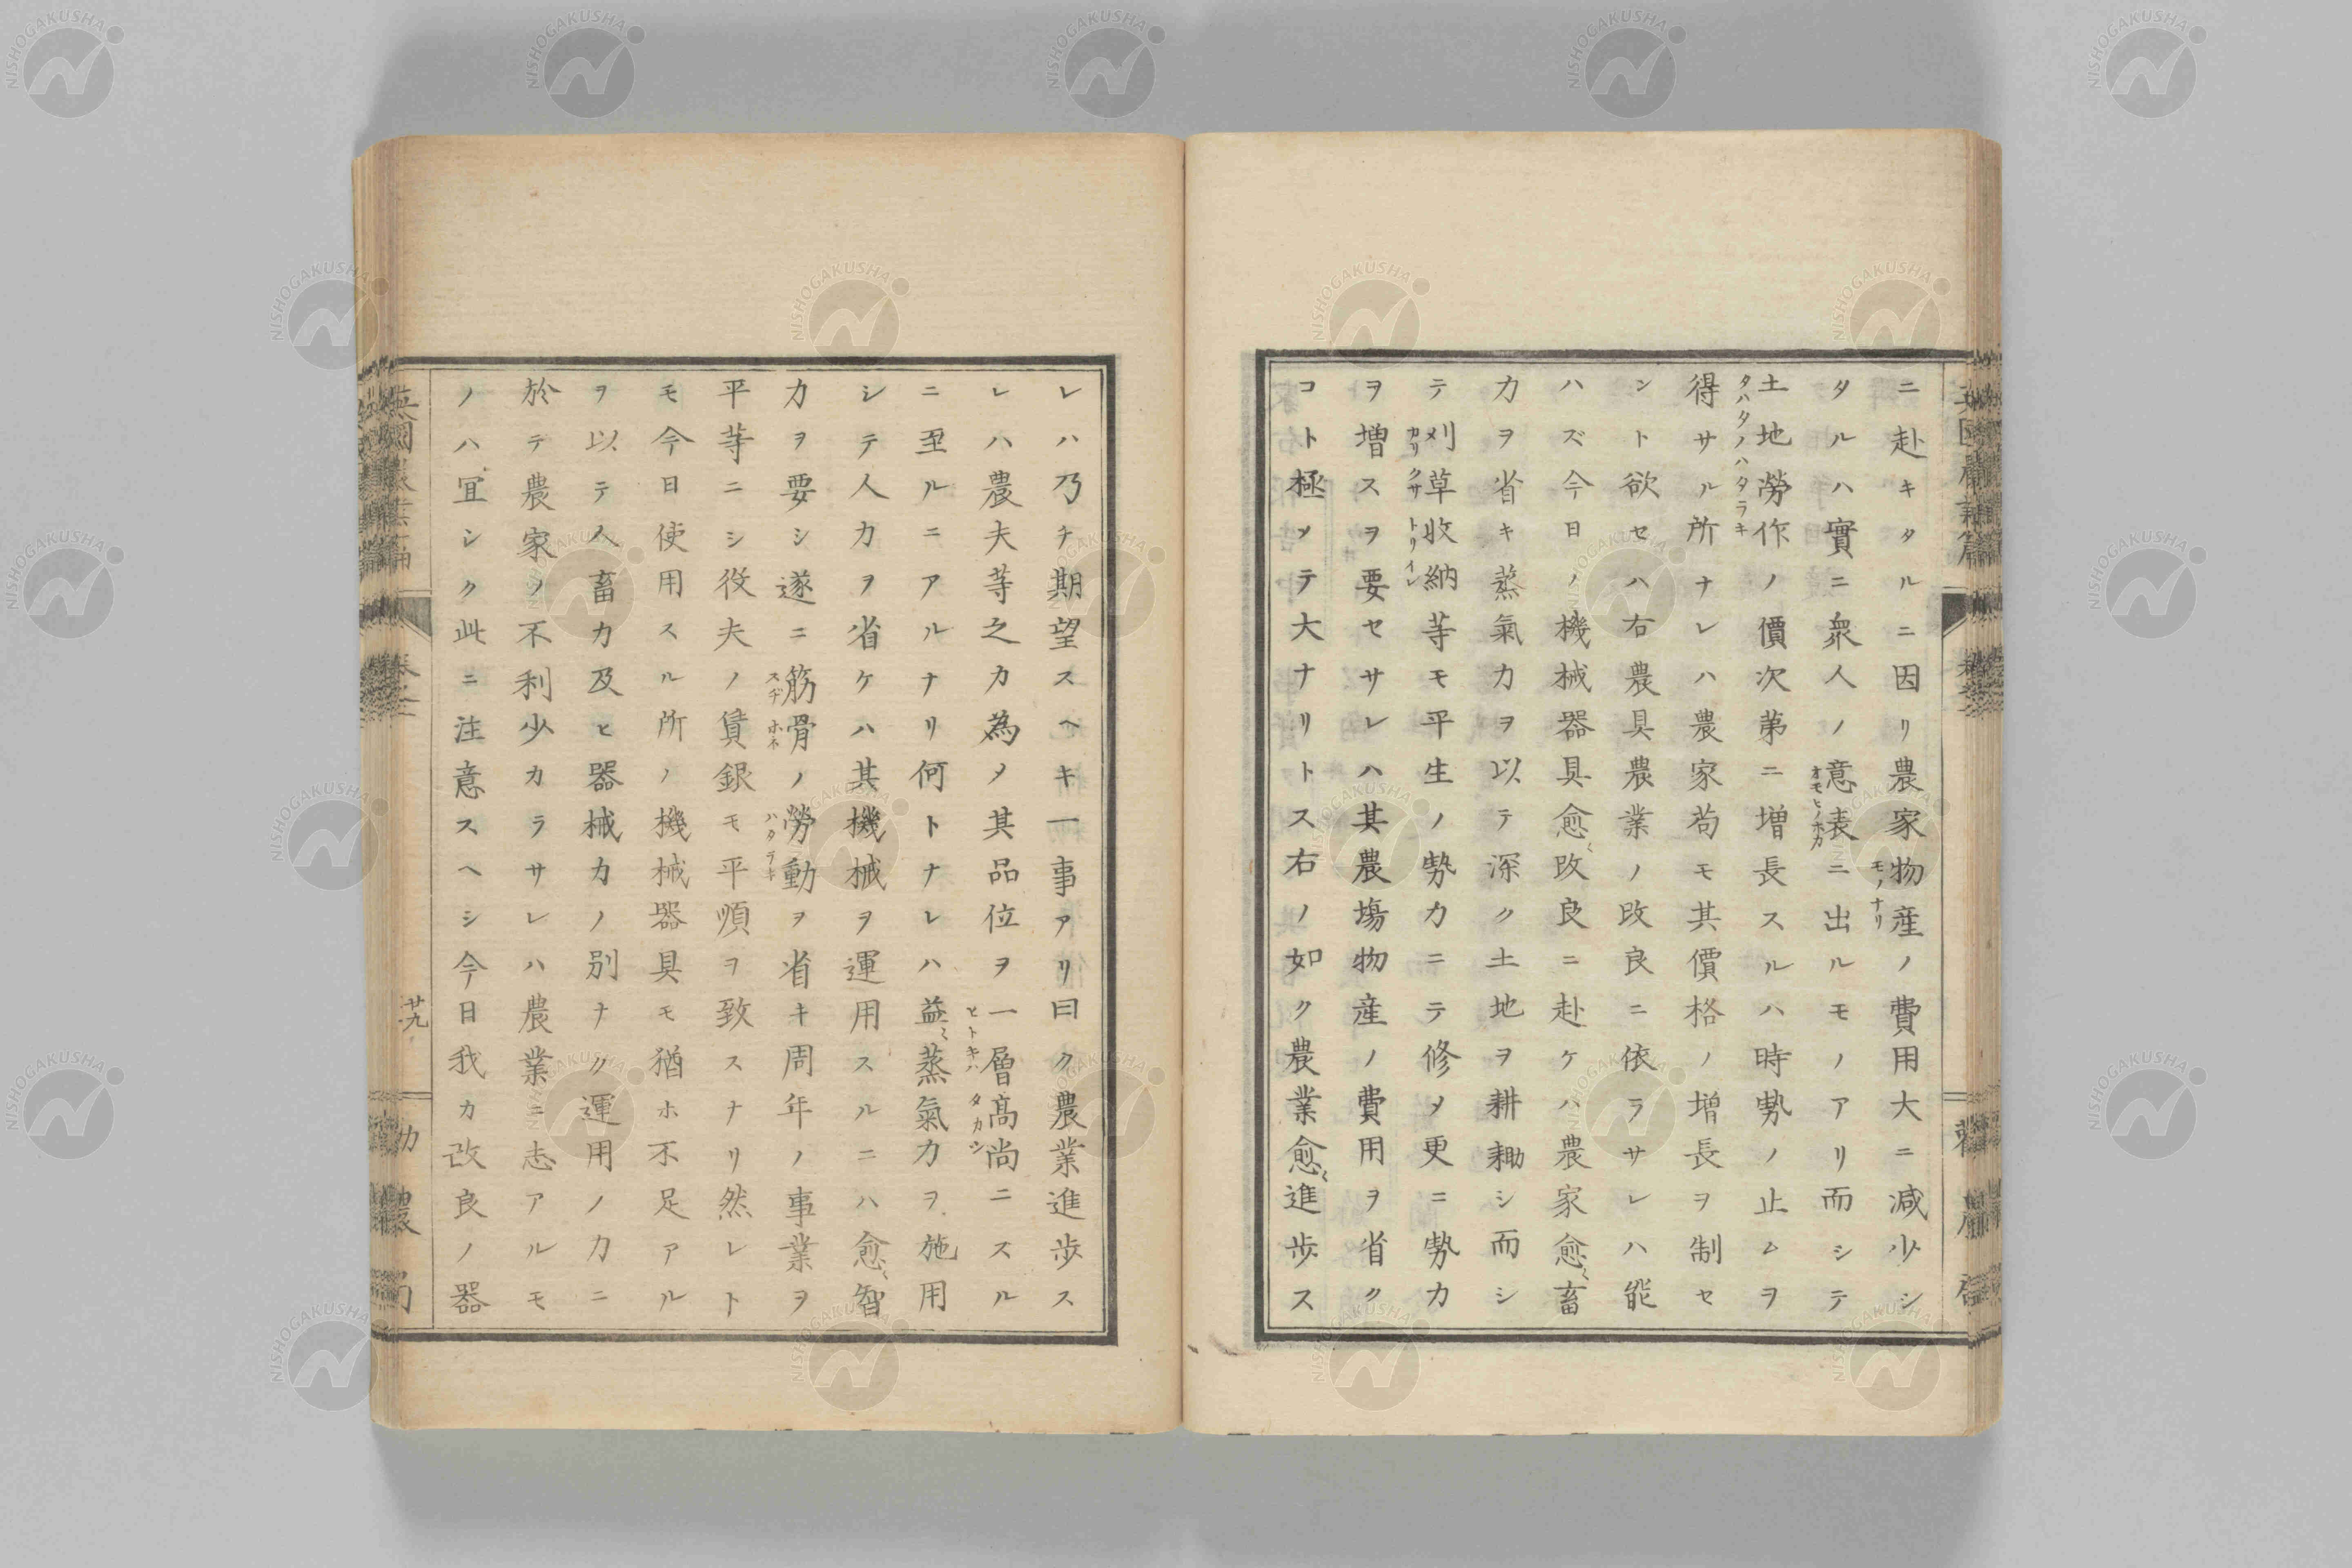 ニ赴キタルニ因リ農家物産ノ費用大ニ減少シ
モノナリ
タルハ實ニ衆人ノ意表ニ出ルモノアリ而シテ
オモヒノホカ
土地勞作ノ價次第ニ増長スルハ時勢ノ止ムヲ
タハタノハタラキ
得サル所ナレハ農家苟モ其價格ノ増長ヲ制セ
ント欲セハ右農具農業ノ改良ニ依ラサレハ能
ハズ今日ノ機械器具愈〻改良ニ赴ケハ農家愈〻畜
力ヲ省キ蒸氣力ヲ以テ深ク土地ヲ耕耡シ而シ
テ刈草收納等モ平生ノ勢力ニテ修メ更ニ勢力
カリクサ トリイレ
ヲ増スヲ要セサレハ其農塲物産ノ費用ヲ省ク
コト極メテ大ナリトス右ノ如ク農業愈〻進歩ス
レハ乃チ期望スヘキ一事アリ曰ク農業進歩ス
レハ農夫等之カ為メ其品位ヲ一層高尚ニスル
ヒトキハ タカシ
ニ至ルニアルナリ何トナレハ益〻蒸氣力ヲ施用
シテ人力ヲ省ケハ其機械ヲ運用スルニハ愈〻智
力ヲ要シ遂ニ筋骨ノ勞動ヲ省キ周年ノ事業ヲ
スヂ ホネ ハタラキ
平等ニシ役夫ノ賃銀モ平順ヲ致スナリ然レト
モ今日使用スル所ノ機械器具モ猶ホ不足アル
ヲ以テ人畜力及ヒ器械力ノ別ナク運用ノ力ニ
於テ農家ノ不利少カラサレハ農業ニ志アルモ
ノハ冝シク此ニ注意スヘシ今日我カ改良ノ器
廿九
NISHOGAKUSHA